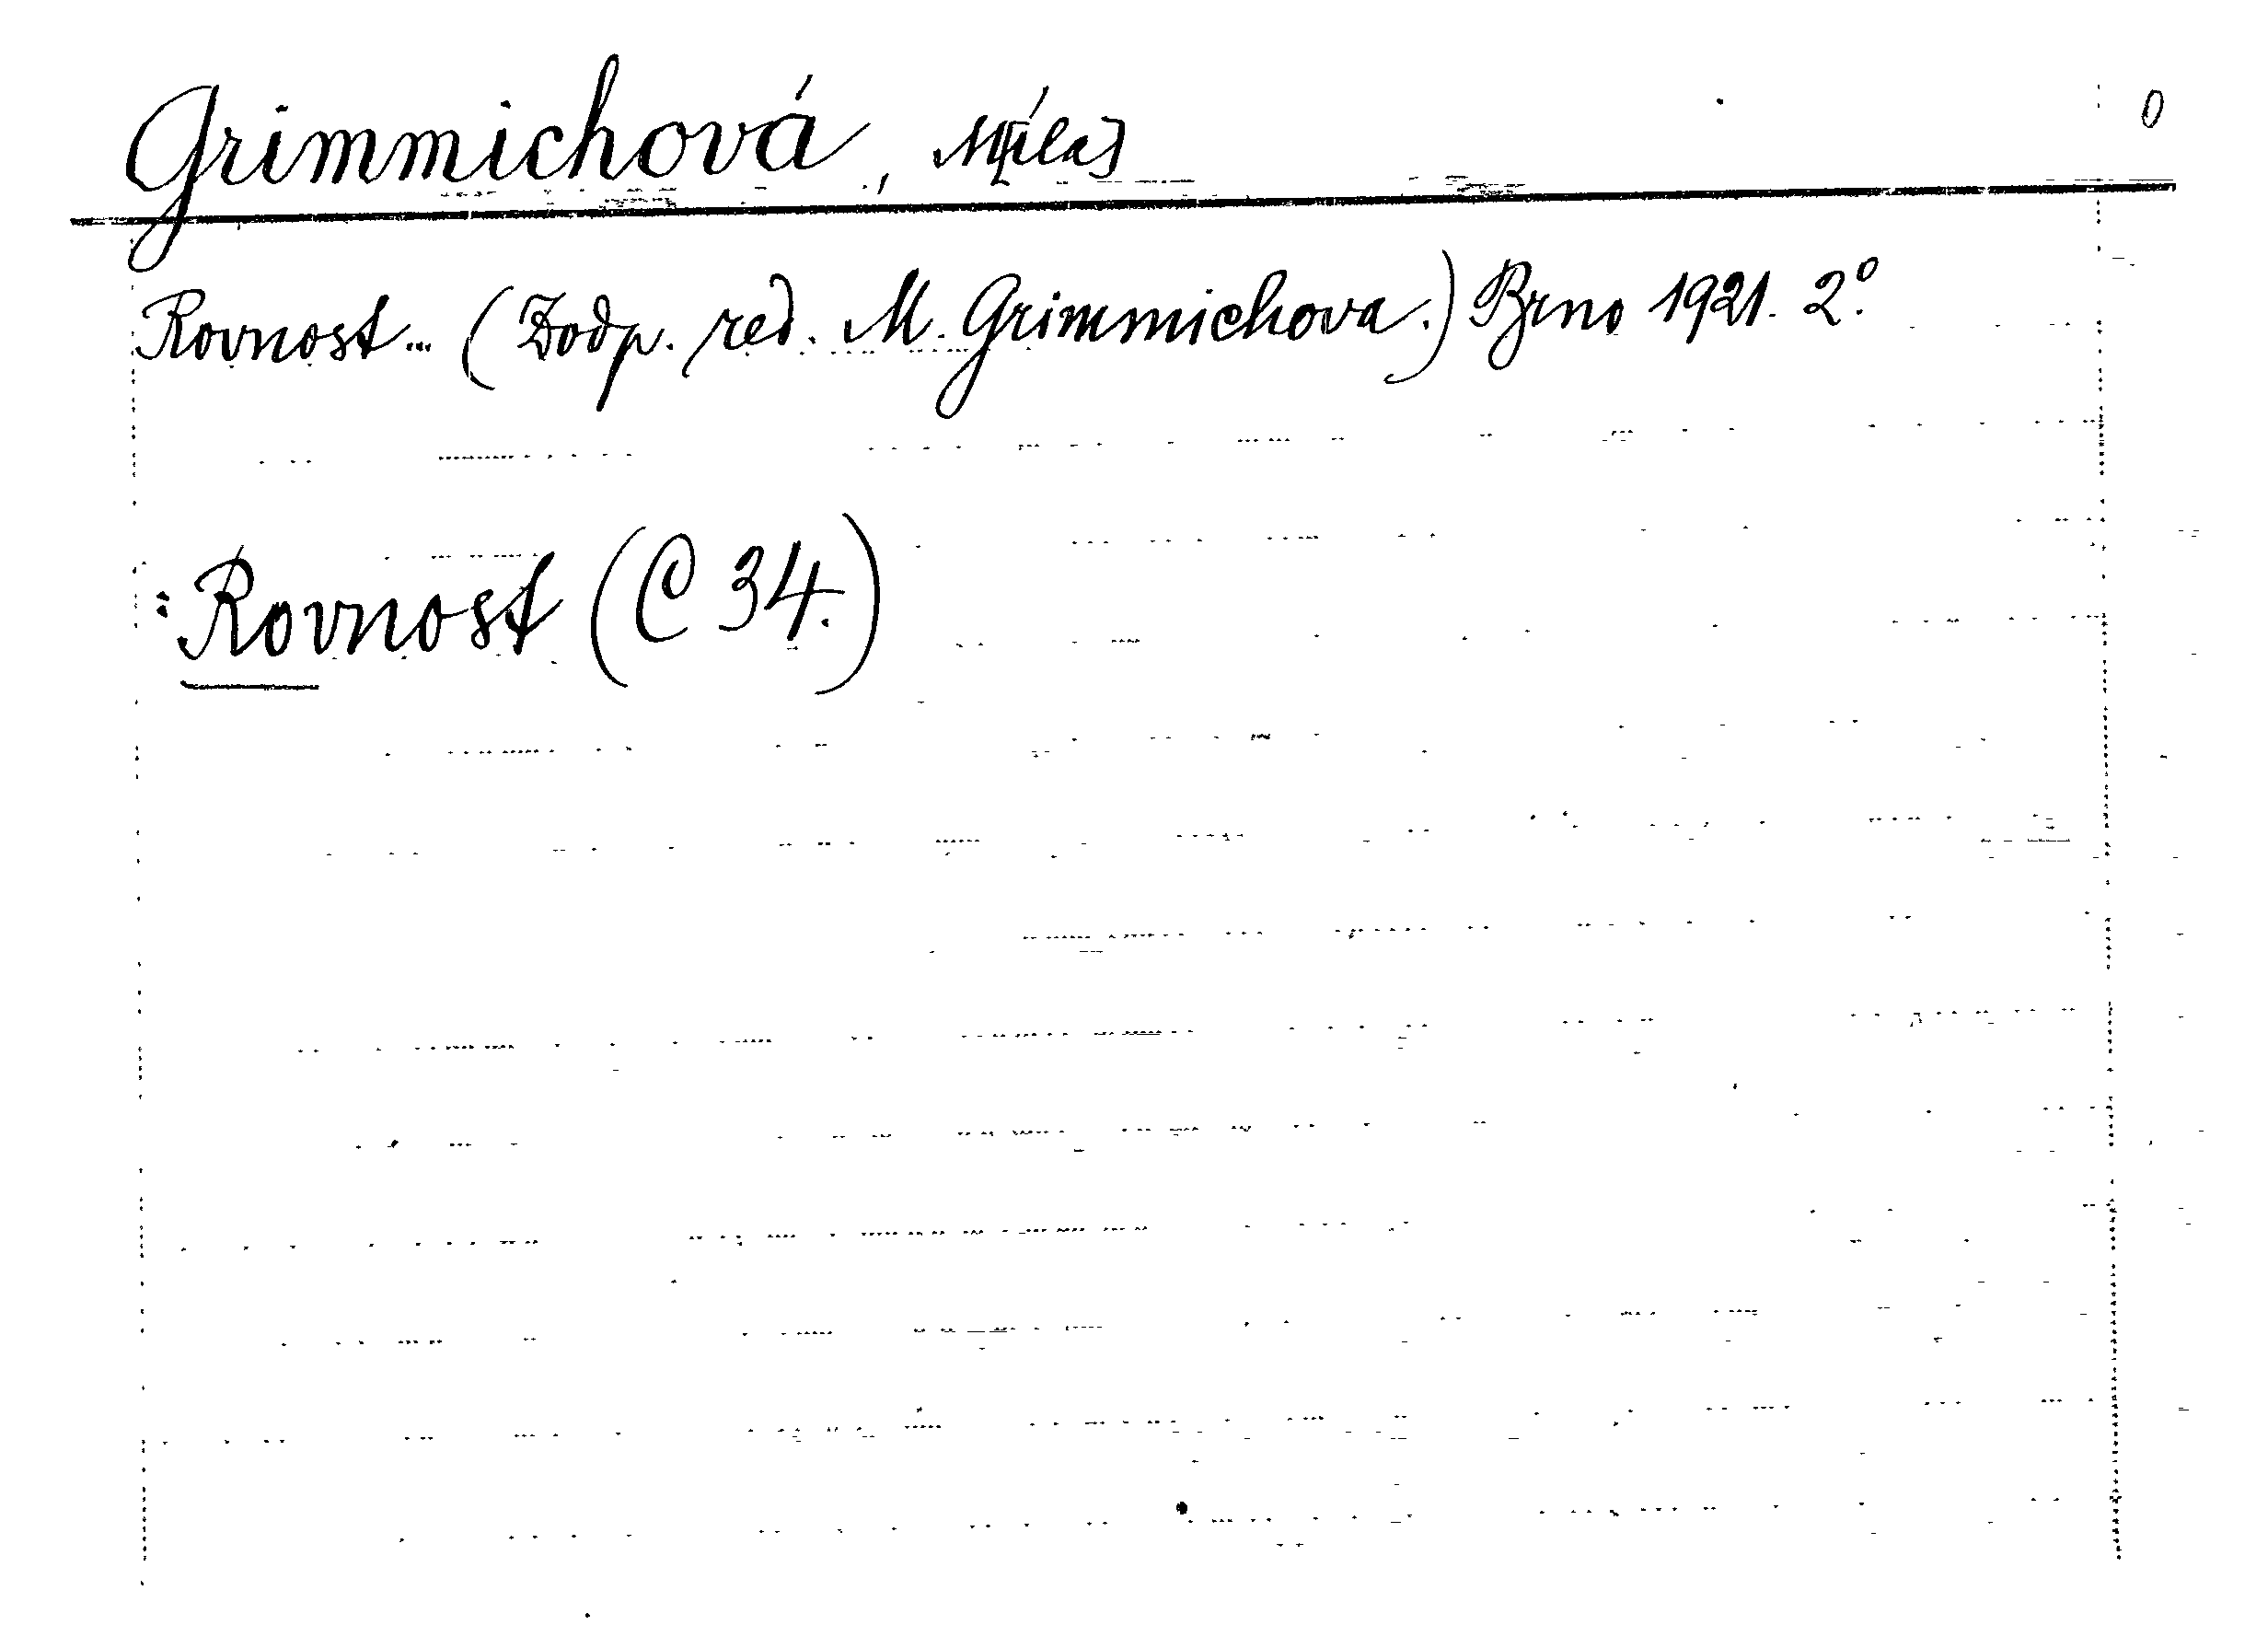 Grimmichová, M[íla] 0
Rovnost... (Zodp. red. M. Grimmichova.) Brno 1921. 2°.
: Rovnost (C 34.)